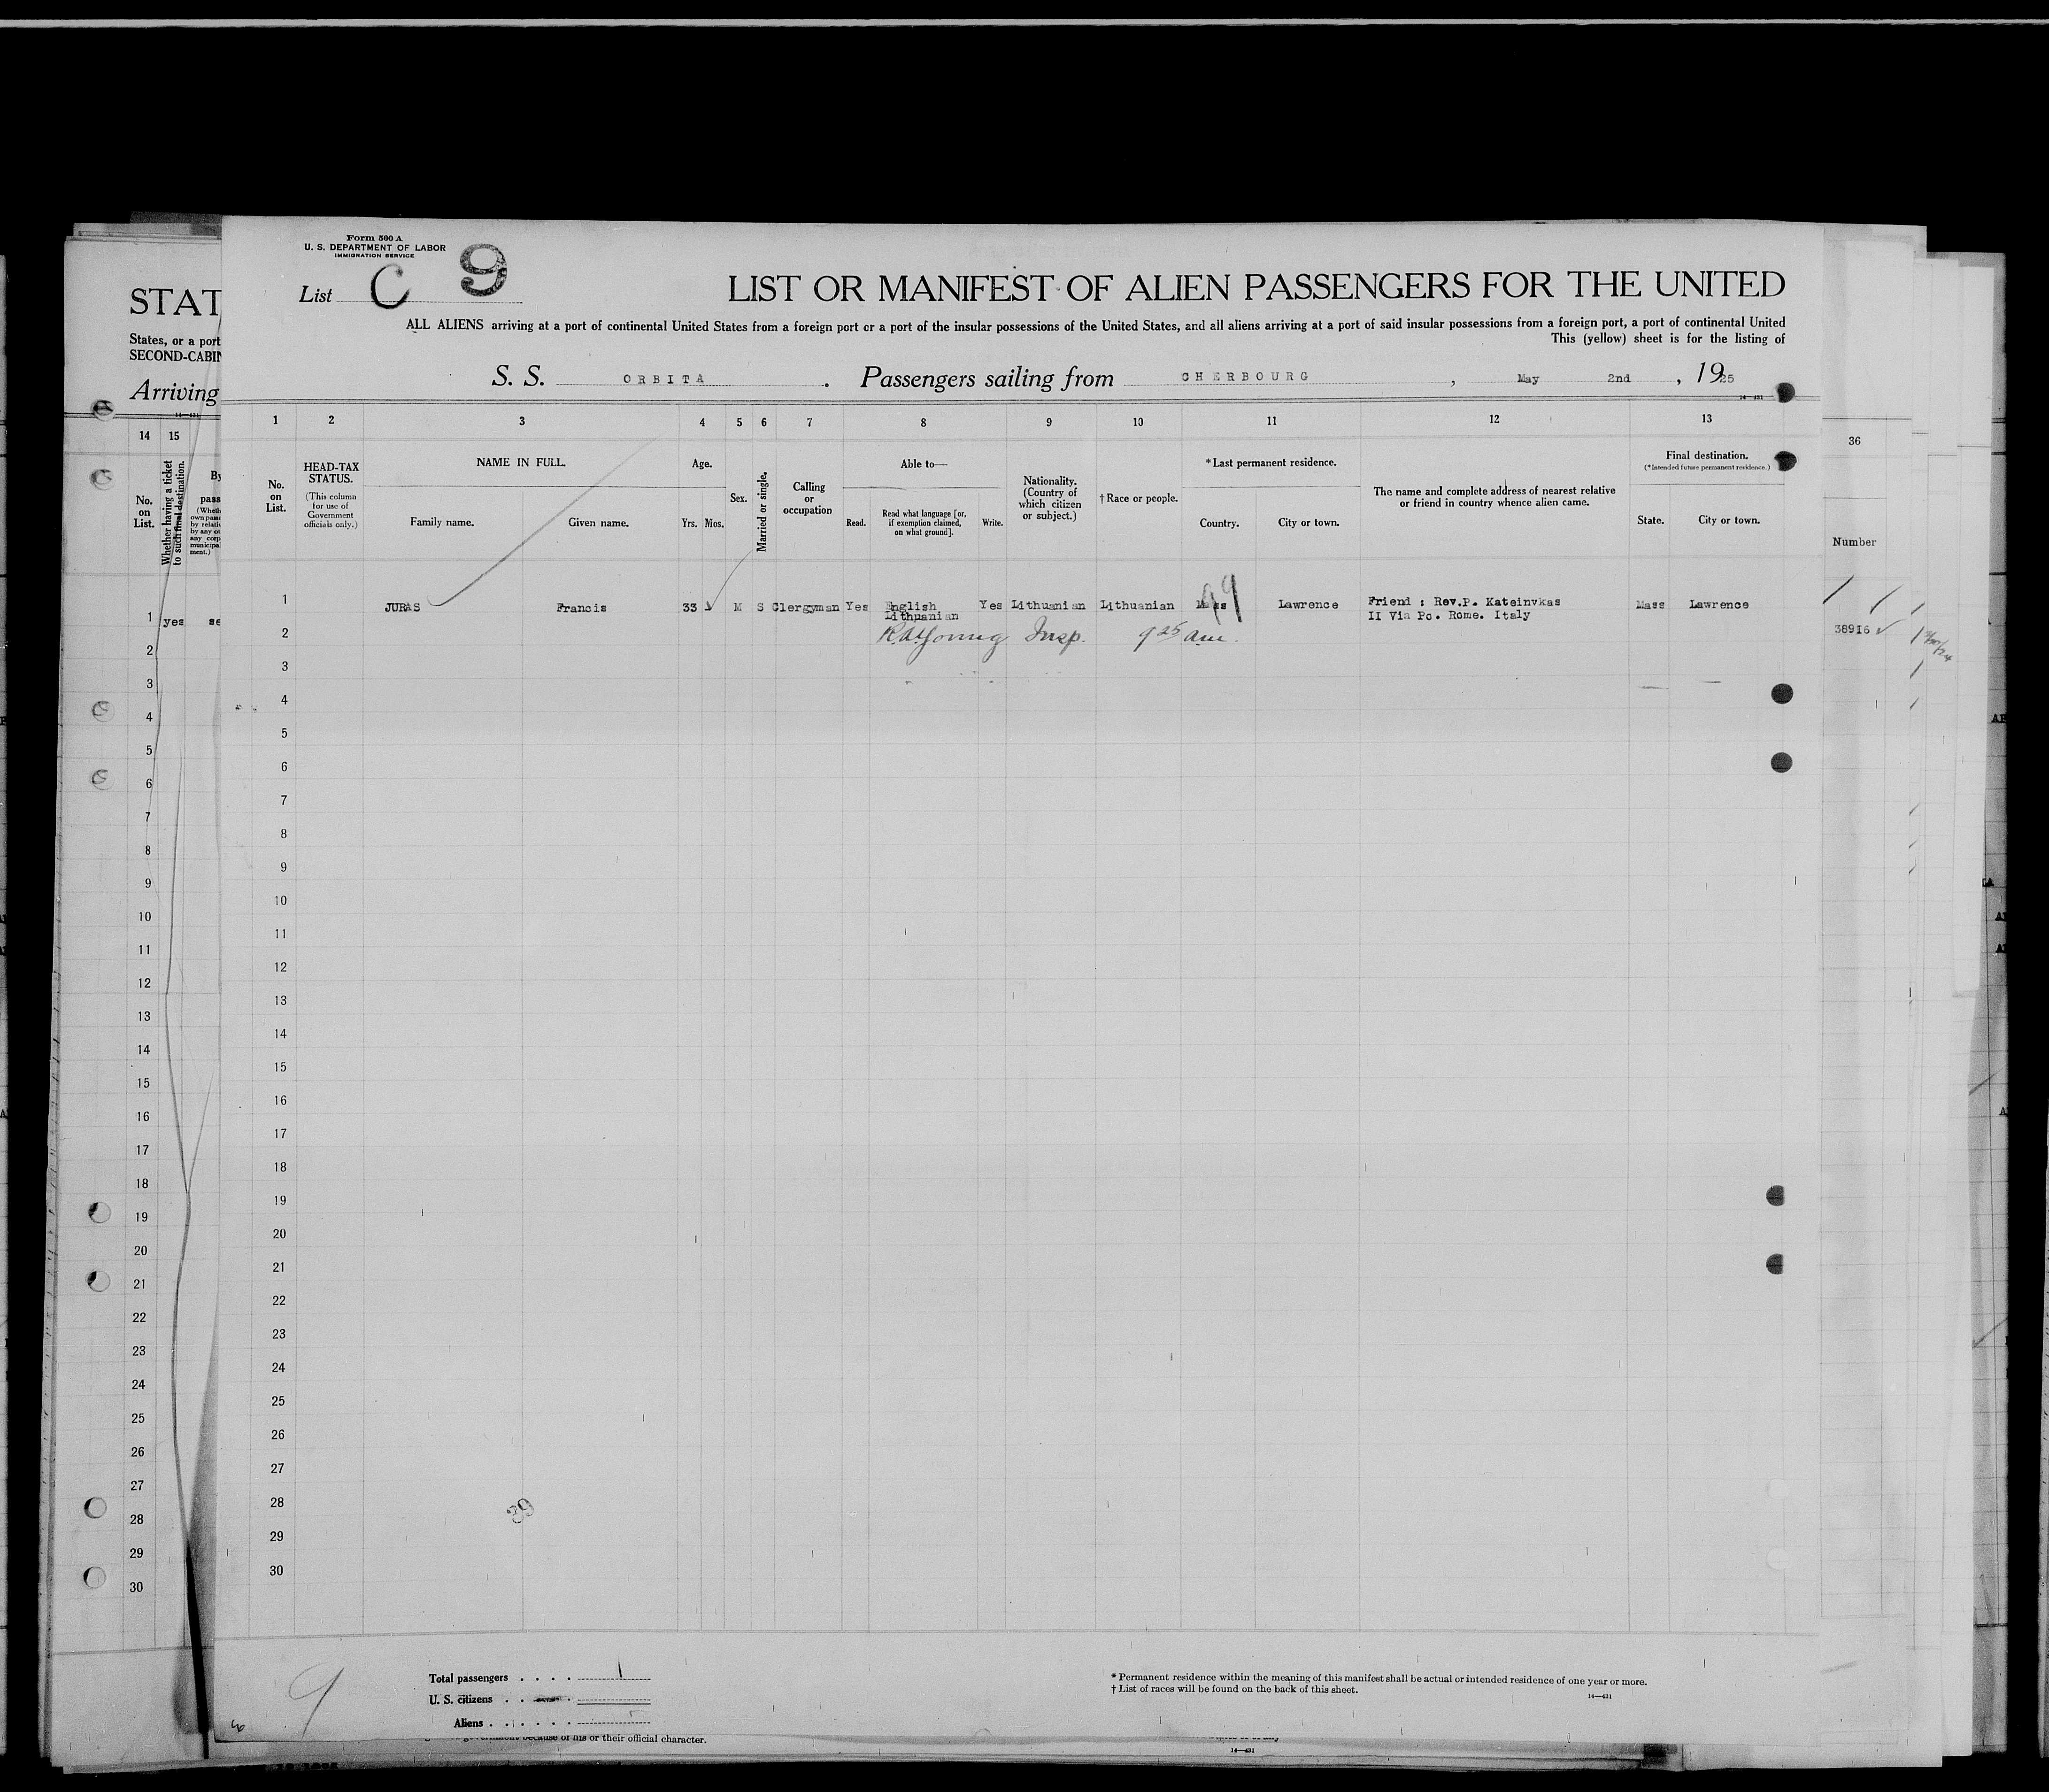 Form 500 A
U. S. DEPARTMENT OF LABOR
IMMIGRATION SERVICE
List C 9
LIST OR MANIFEST OF ALIEN PASSENGERS FOR THE UNITED
ALL ALIENS arriving at a port of continental United States from a foreign port or a port of the insular possessions of the United States, and all aliens arriving at a port of said insular possessions from a foreign port, a port of continental United
This (yellow) sheet is for the listing of
S. S. ORBITA . Passengers sailing from CHERBOURG , May 2nd , 1925
14—431
STAT
States, or a port
SECOND-CABIN
Arriving
14 15
No. on List.
Whether having a ticket to such final destination.
1 2 3 4 5 6 7 8 9 10 11 12 13
No. on List.
HEAD-TAX STATUS.
(This column for use of Government officials only.)
NAME IN FULL.
Family name. Given name.
Age.
Yrs. Mos.
Sex.
Married or single.
Calling or occupation
Able to—
Read. Read what language [or, if exemption claimed, on what ground]. Write.
Nationality. (Country of which citizen or subject.)
† Race or people.
* Last permanent residence.
Country. City or town.
The name and complete address of nearest relative or friend in country whence alien came.
Final destination.
(* Intended future permanent residence.)
State. City or town.
36
Number
1 yes se
1 JURAS Francis 33 M S Clergyman Yes English Yes Lithuanian Lithuanian Mass 99 Lawrence Friend : Rev.P. Kateinvkas Mass Lawrence
Lithuanian II Via Po. Rome. Italy
38916
2 Insp. 9 25 am.
3
4
5
6
7
8
9
10
11
12
13
14
15
16
17
18
19
20
21
22
23
24
25
26
27
28
29
30
2
3
4
5
6
7
8
9
10
11
12
13
14
15
16
17
18
19
20
21
22
23
24
25
26
27
28
29
30
39
9
Total passengers . . . . 1
U. S. citizens . .
Aliens . . . . . .
* Permanent residence within the meaning of this manifest shall be actual or intended residence of one year or more.
† List of races will be found on the back of this sheet.
14—431
because of his or their official character.
14—431